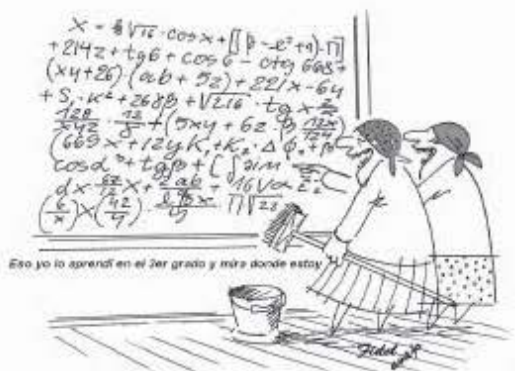 X = √16 · cos x + [[β - e² + 1) · Π]
+ 214z + tg β + cos 6 - ctg 668 +
(xy + 26) · (ab + 5z) + 221x - 6y
+ S, · K² + 268β + √216 · tg x
128/xyz · 12/8 + (5xy + 6z · 12x/124)
(669x + 12y K, + K₂ · Δ
cos α + tg β + [∫ sin
dx · X + 2ab - 16√α
(6/x) × (42/4) · Π√23
Eso yo lo aprendí en el 3er grado y mira donde estoy
Fidel